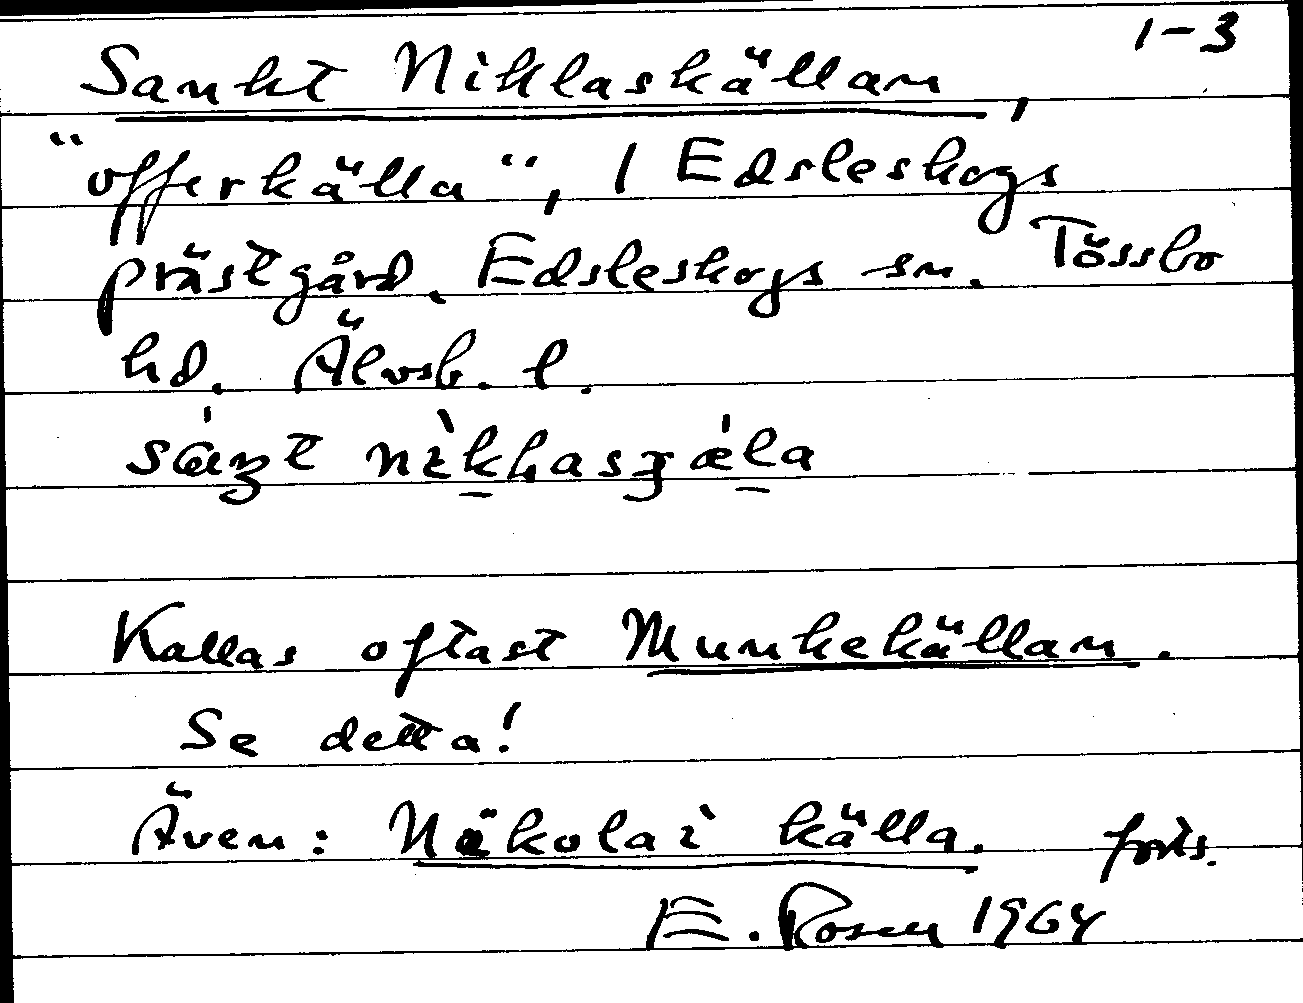 1-3
Sankt Niklaskällan,
"offerkälla", i Edsleskogs
prästgård. Edsleskogs sn. Tössbo
hd. Älvsb. l.
Kallas oftast Munkekällan.
Se detta!
Även: Näkolai källa. forts.
E. Rosen 1964